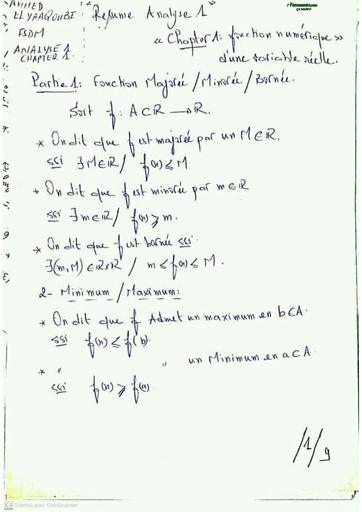 AHMED
EL YAAQOUBI
FSDM
ANALYSE 1
CHAPTER 1.
"Résumé Analyse 1"
"Chapter 1: fonction numérique"
d'une variable réelle.
Partie 1: Fonction Majorée / Minorée / Bornée.
Soit f: A⊂ℝ → ℝ.
* On dit que f est majorée par un M∈ℝ.
ssi ∃M∈ℝ / f(x) ≤ M
* On dit que f est minorée par m∈ℝ
ssi ∃m∈ℝ / f(x) ≥ m.
* On dit que f est bornée ssi
∃(m,M)∈ℝxℝ / m ≤ f(x) ≤ M.
2- Minimum / Maximum:
* On dit que f Admet un maximum en b⊂A.
ssi f(x) ≤ f(b).
* " " un Minimum en a⊂A.
ssi f(x) ≥ f(a).
/1/9
Scanné avec CamScanner